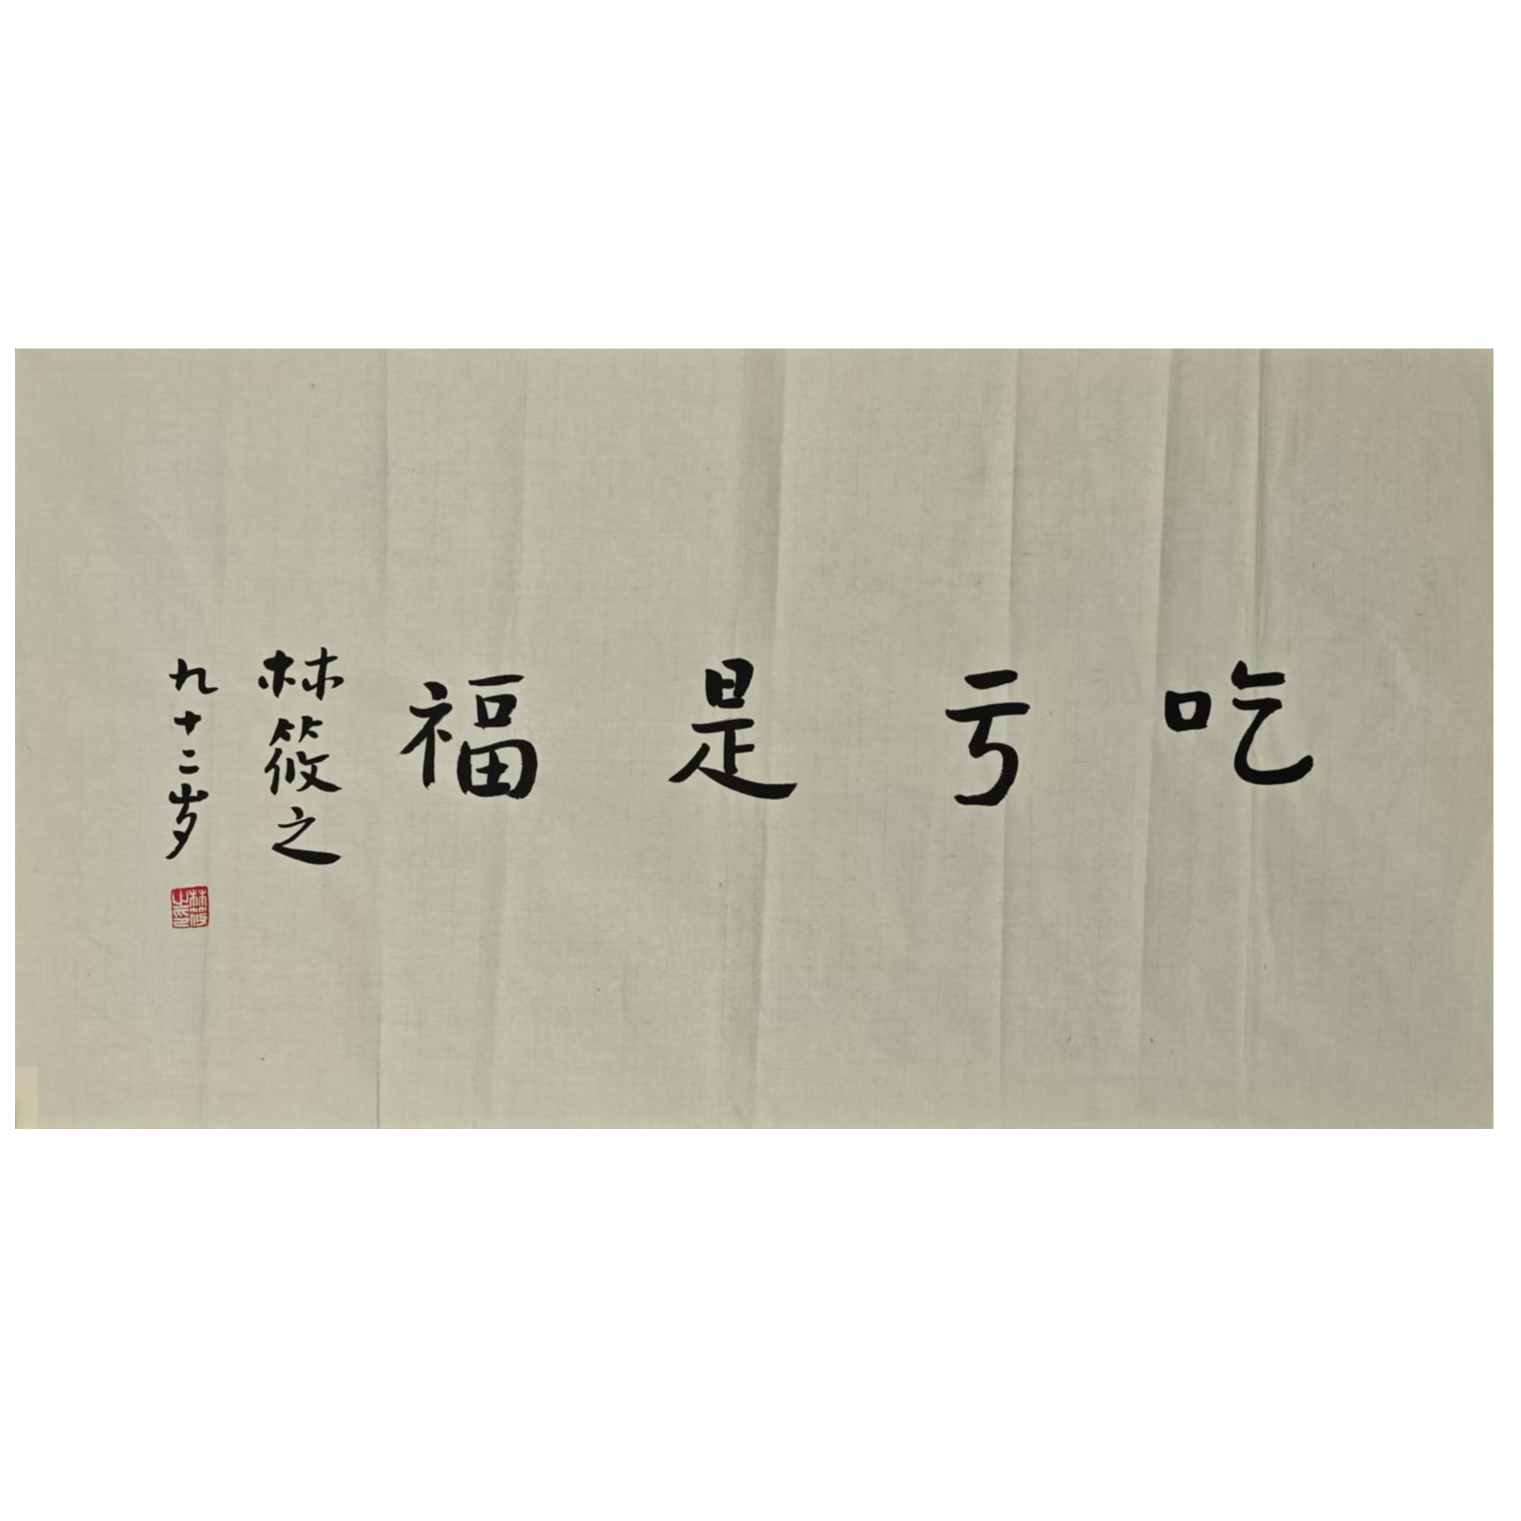 吃亏是福
林筱之
九十二岁
林筱之印